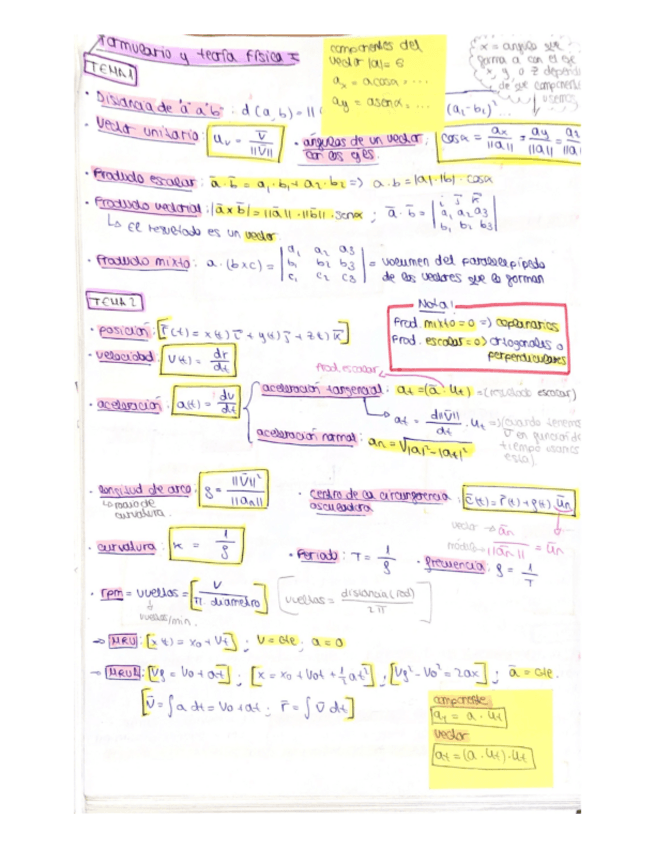 Formulario y teoría física I
TEMA 1
componentes del
vector |a| = 6
aₓ = a cosα = ...
a_y = a senα = ...
α = ángulo que
forma a con el eje
x, y, o z depende
de que componente
usemos
· Distancia de "a" a "b": d(a,b) = || (a₂-b₂)²
· Vector unitario: u_v = v̅/||v̅||
· ángulos de un vector con los ejes. cosα = aₓ/||a|| = a_y/||a|| = a_z/||a||
· Producto escalar: a̅·b̅ = a₁·b₁ + a₂·b₂ => a·b = |a|·|b|·cosα
· Producto vectorial: |a̅ x b̅| = ||a̅||·||b̅||·senα ; a̅·b̅ = | i̅ j̅ k̅ | a₁ a₂ a₃ | b₁ b₂ b₃ |
↳ El resultado es un vector
· Producto mixto: a·(b x c) = | a₁ a₂ a₃ | b₁ b₂ b₃ | c₁ c₂ c₃ | = volumen del paralelepípedo
de los vectores que lo forman
TEMA 2
Nota!
Prod. mixto = 0 => coplanarios
Prod. escalar = 0 => ortogonales o
perpendiculares
· posición: [r̅(t) = x(t) i̅ + y(t) j̅ + z(t) k̅]
· velocidad: v(t) = dr/dt
Prod. escalar
· aceleración: a(t) = dv/dt
aceleración tangencial: a_t = (a̅·u_t) = (resultado escalar)
a_t = d||v̅||/dt · u_t => (cuando tenemos
v̅ en función del
tiempo usamos
esta)
aceleración normal: a_n = √|a|²-|a_t|²
· Longitud de arco: ρ = ||v̅||²/||a_n||
↳ radio de
curvatura.
· Centro de la circunferencia
osculadora : c̅(t) = r̅(t) + ρ(t)·u̅n
vector → a̅n
módulo → ||a̅n|| = u̅n
· curvatura: κ = 1/ρ
· Periodo: T = 1/f
· frecuencia: f = 1/T
· rpm = vueltas = [v/π·diámetro] [vueltas = distancia (rad)/2π]
vueltas/min.
→ MRU: [x(t) = x₀ + vt] ; v = cte ; a = 0
→ MRUA: [vf = v₀ + at] ; [x = x₀ + v₀t + ½at²] , [vf² - v₀² = 2ax] ; a̅ = cte.
[v̅ = ∫a dt = v₀ + at ; r̅ = ∫v̅ dt]
componente
a_t = a · u_t
vector
a_t = (a · u_t) · u_t